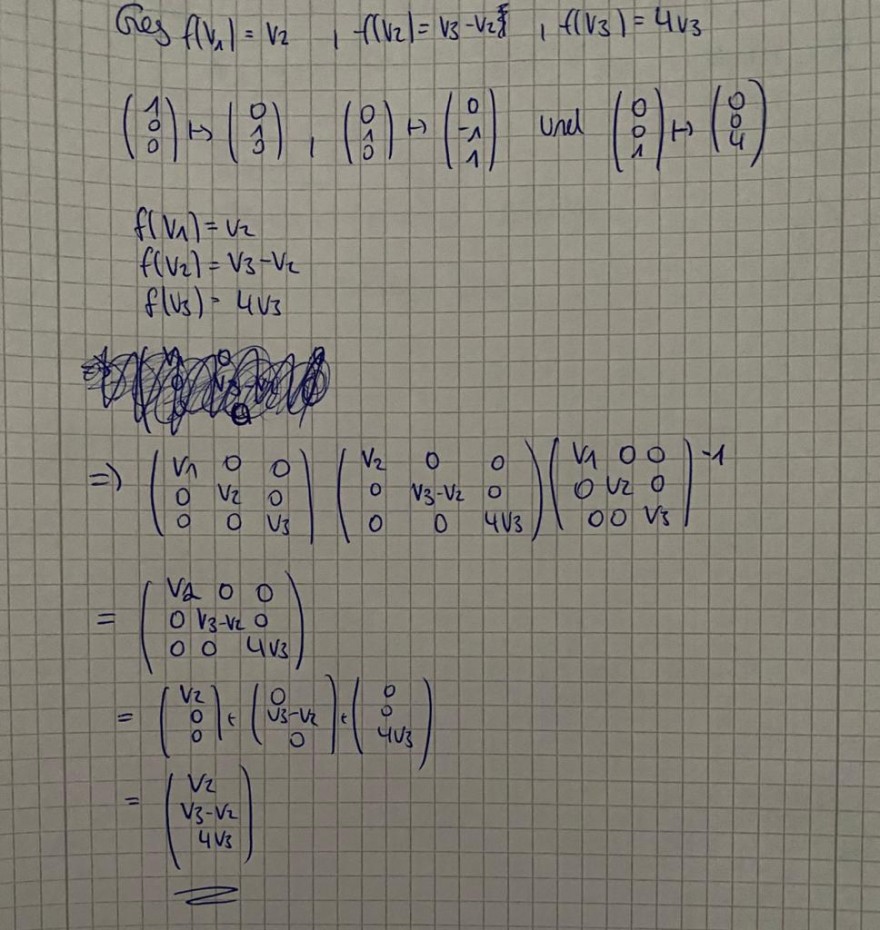 Ges f(v₁) = v₂ , f(v₂) = v₃-v₂ , f(v₃) = 4v₃
(1 0 0) ↦ (0 1 0) , (0 1 0) ↦ (0 -1 1) und (0 0 1) ↦ (0 0 4)
f(v₁) = v₂
f(v₂) = v₃-v₂
f(v₃) = 4v₃
=> (v₁ 0 0 / 0 v₂ 0 / 0 0 v₃) (v₂ 0 0 / 0 v₃-v₂ 0 / 0 0 4v₃) (v₁ 0 0 / 0 v₂ 0 / 0 0 v₃)⁻¹
= (v₂ 0 0 / 0 v₃-v₂ 0 / 0 0 4v₃)
= (v₂ 0 0) + (0 v₃-v₂ 0) + (0 0 4v₃)
= (v₂ v₃-v₂ 4v₃)